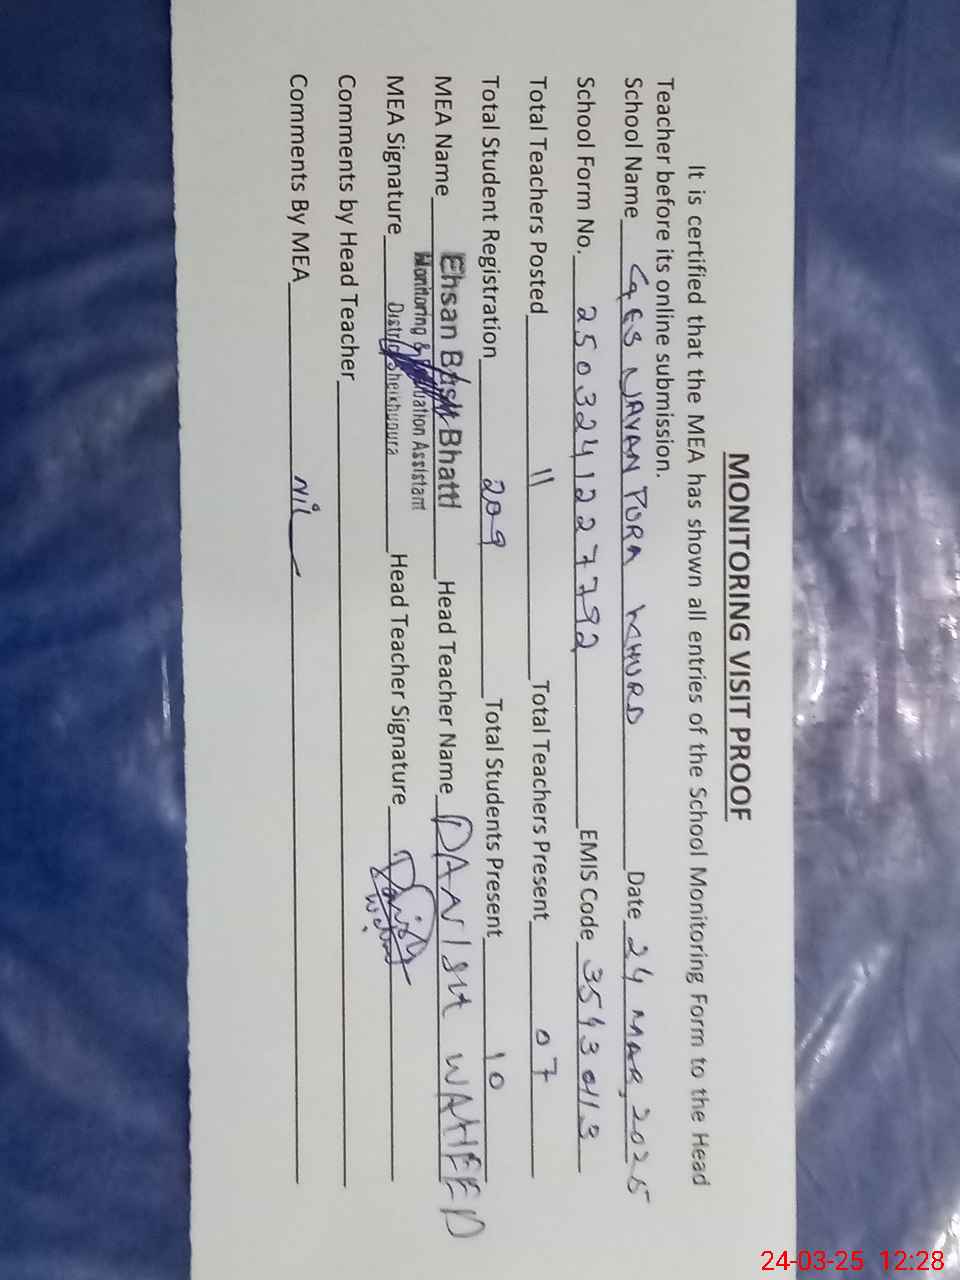 MONITORING VISIT PROOF
It is certified that the MEA has shown all entries of the School Monitoring Form to the Head
Teacher before its online submission.
School Name GES NAYAN PURA KHURD Date 24 MAR, 2025
School Form No. 2503241227792 EMIS Code 35430113
Total Teachers Posted 11 Total Teachers Present 07
Total Student Registration 209 Total Students Present 10
MEA Name Ehsan Bhatti Head Teacher Name DANISH WAHEED
Monitoring & Assistant
MEA Signature District Sheikhupura Head Teacher Signature Danish
Comments by Head Teacher
Comments By MEA Nil
24-03-25 12:28